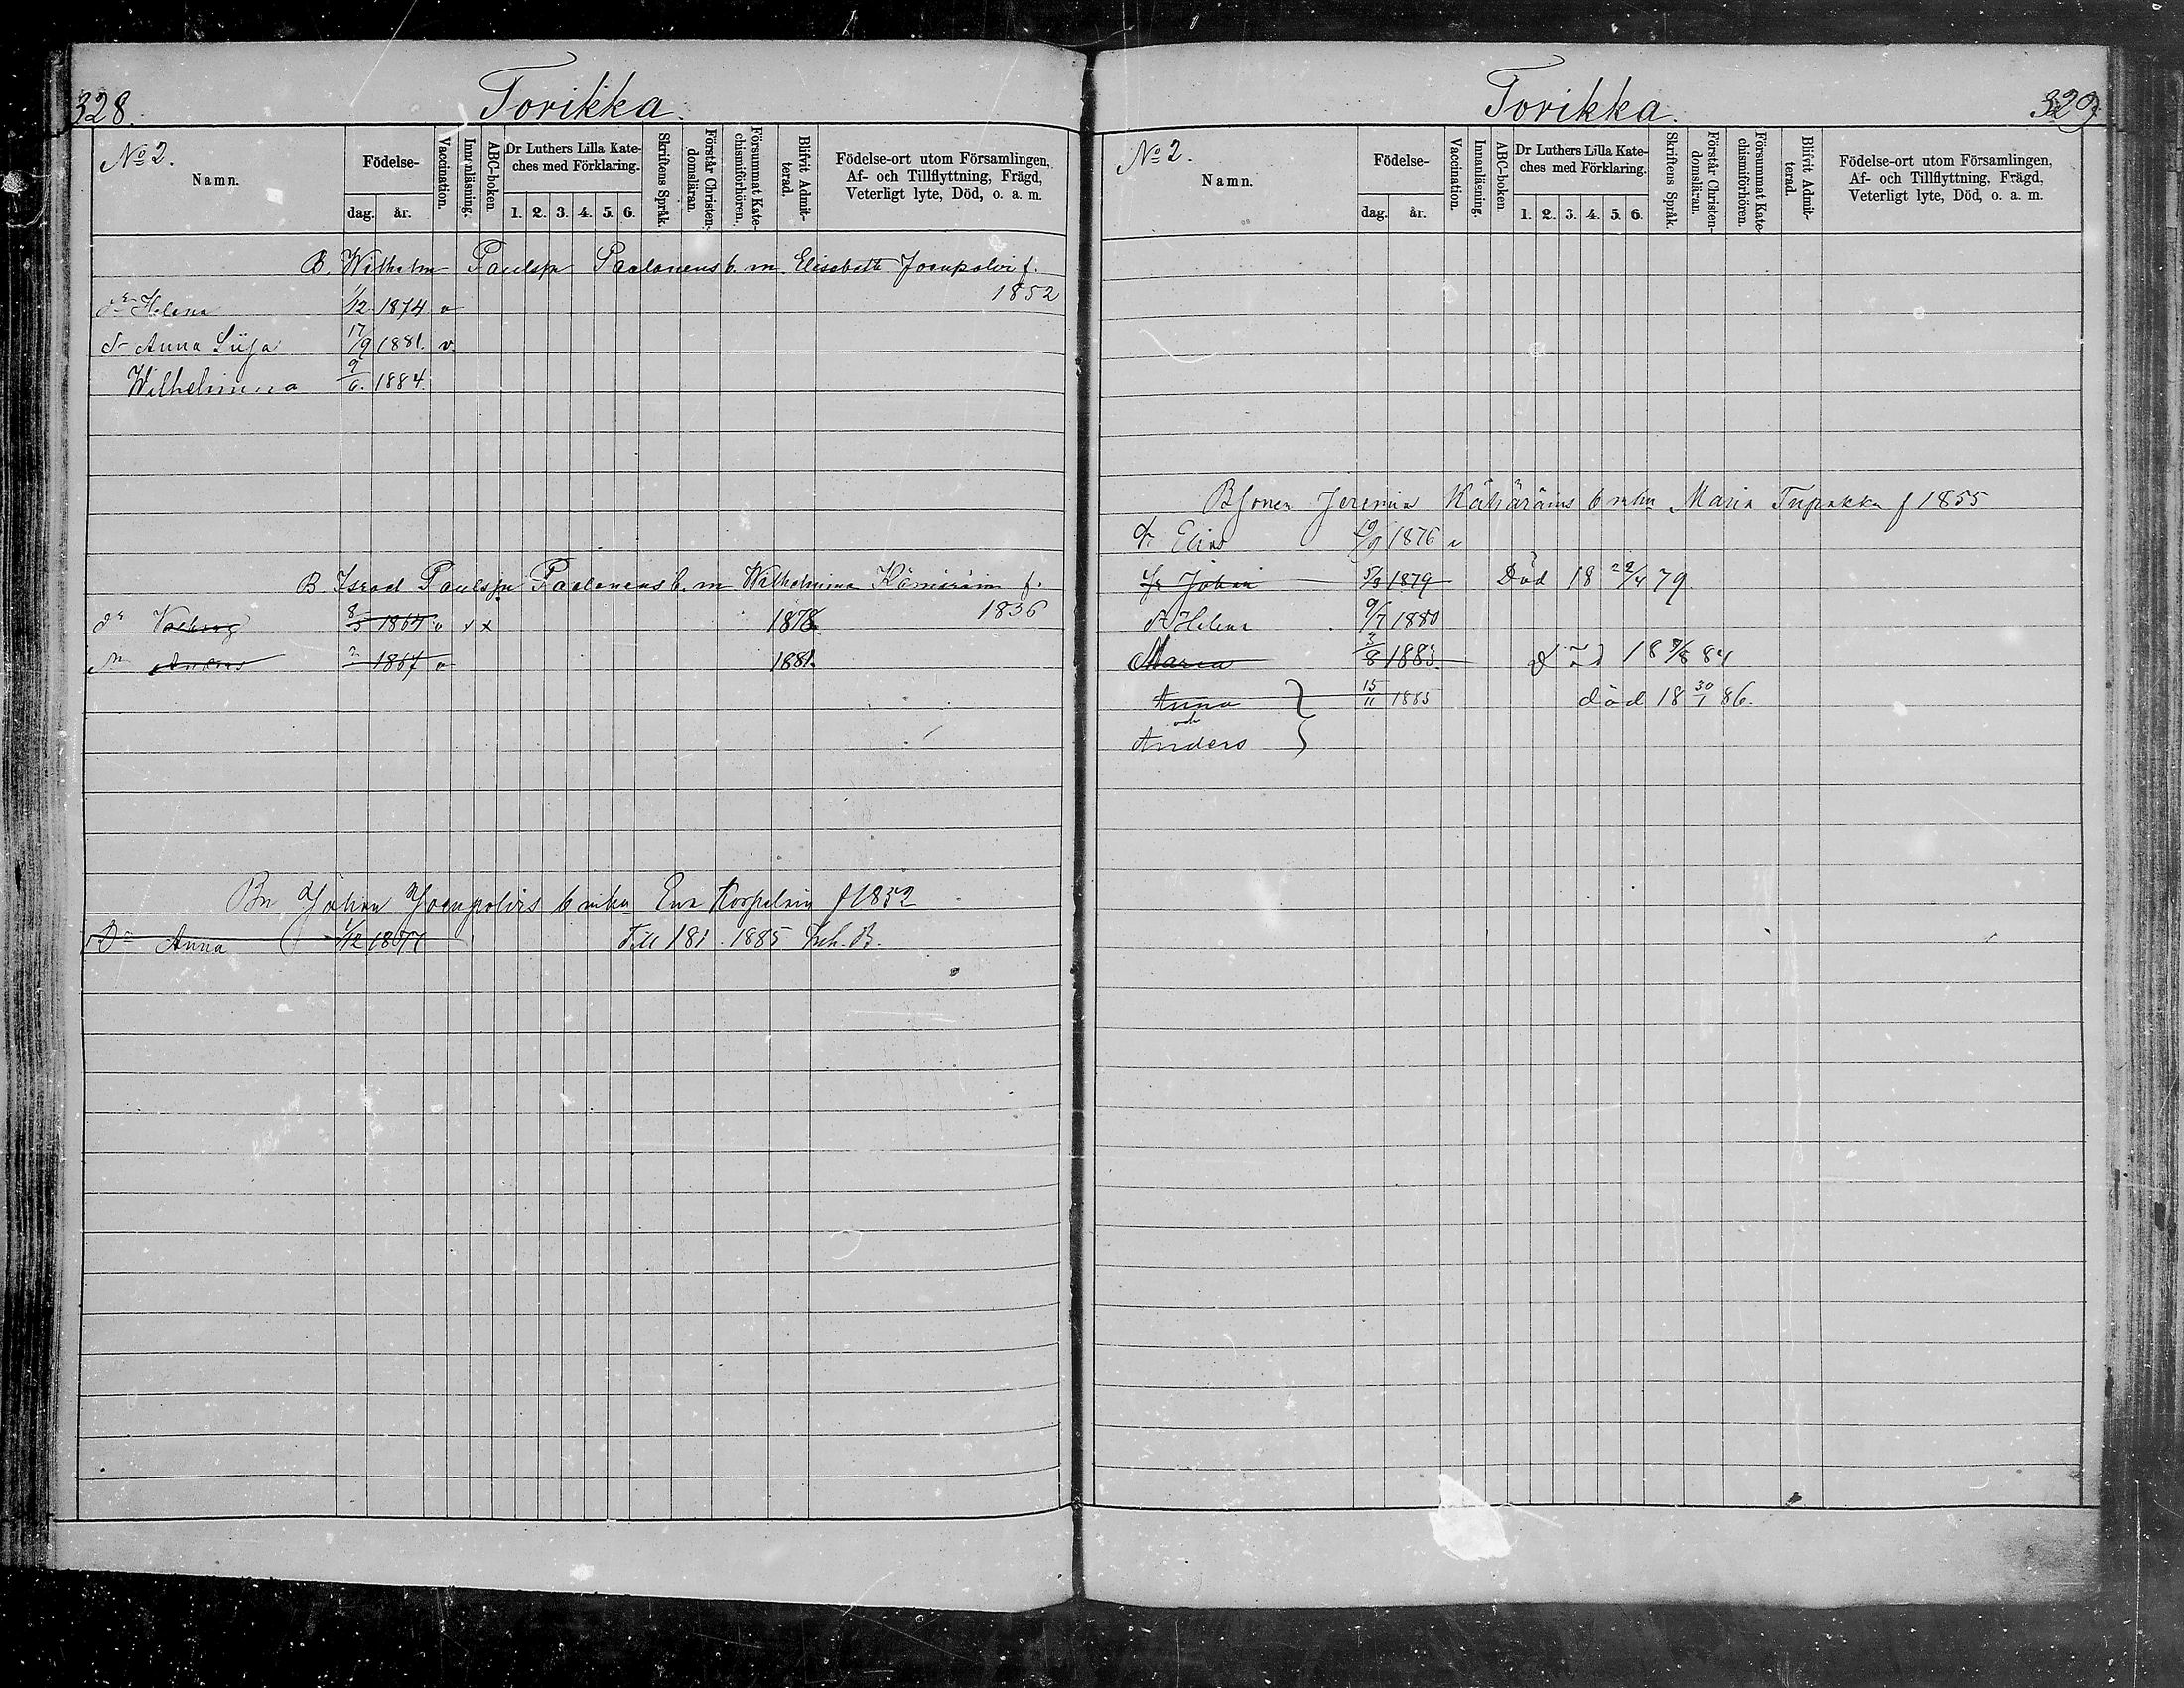 328.
Torikka.
No 2.
Namn.
Födelse-
dag. år.
Vaccination.
Innanläsning.
ABC-boken.
Dr Luthers Lilla Kate-
ches med Förklaring.
1. 2. 3. 4. 5. 6.
Skriftens Språk.
Förstår Christen-
domsläran.
Försummat Kate-
chismiförhören.
Blifvit Admit-
terad.
Födelse-ort utom Församlingen,
Af- och Tillflyttning, Frägd,
Veterligt lyte, Död, o. a. m.
B. Wilhelm Paulsn Paalanens b. m. Elisabeth Joenpolvi f.
1852
dr Helena 1/12 1874 v
dr Anna Liisa 17/9 1881. v.
Wilhelmina 9/6. 1884.
B Israel Paulsn Paalanens b. m Wilhelmina f.
1836
dr 8/3 v x x 1878.
Anders 1867 v 1881.
Bn Johan Joenpolvis b mhu Eva f 1852
Dr Anna 1/12 1877 Till 181. 1885 Insk. B.
Torikka.
329
No 2.
Namn.
Födelse-
dag. år.
Vaccination.
Innanläsning.
ABC-boken.
Dr Luthers Lilla Kate-
ches med Förklaring.
1. 2. 3. 4. 5. 6.
Skriftens Språk.
Förstår Christen-
domsläran.
Försummat Kate-
chismiförhören.
Blifvit Admit-
terad.
Födelse-ort utom Församlingen,
Af- och Tillflyttning, Frägd,
Veterligt lyte, Död, o. a. m.
Bsonen Jeremias b mhu Maria Tupakka f 1855
Elias 1876 v
Johan 5/3 1879 Död 18 22/4 79.
dr Helena 9/7 1880
Maria 3/8 1883. Död 18 84
Anna 15/11 1885 död 18 30/1 86.
och
Anders